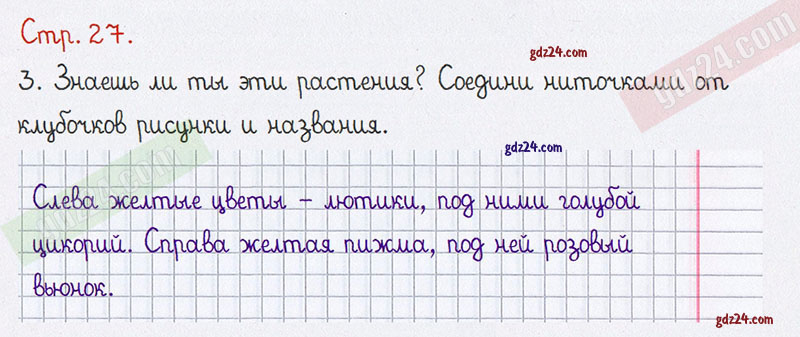 Стр. 27.
gdz24.com
gdz24.com
3. Знаешь ли ты эти растения? Соедини ниточками от
клубочков рисунки и названия.
gdz24.com
gdz24.com
Слева желтые цветы – лютики, под ними голубой
цикорий. Справа желтая пижма, под ней розовый
вьюнок.
gdz24.com